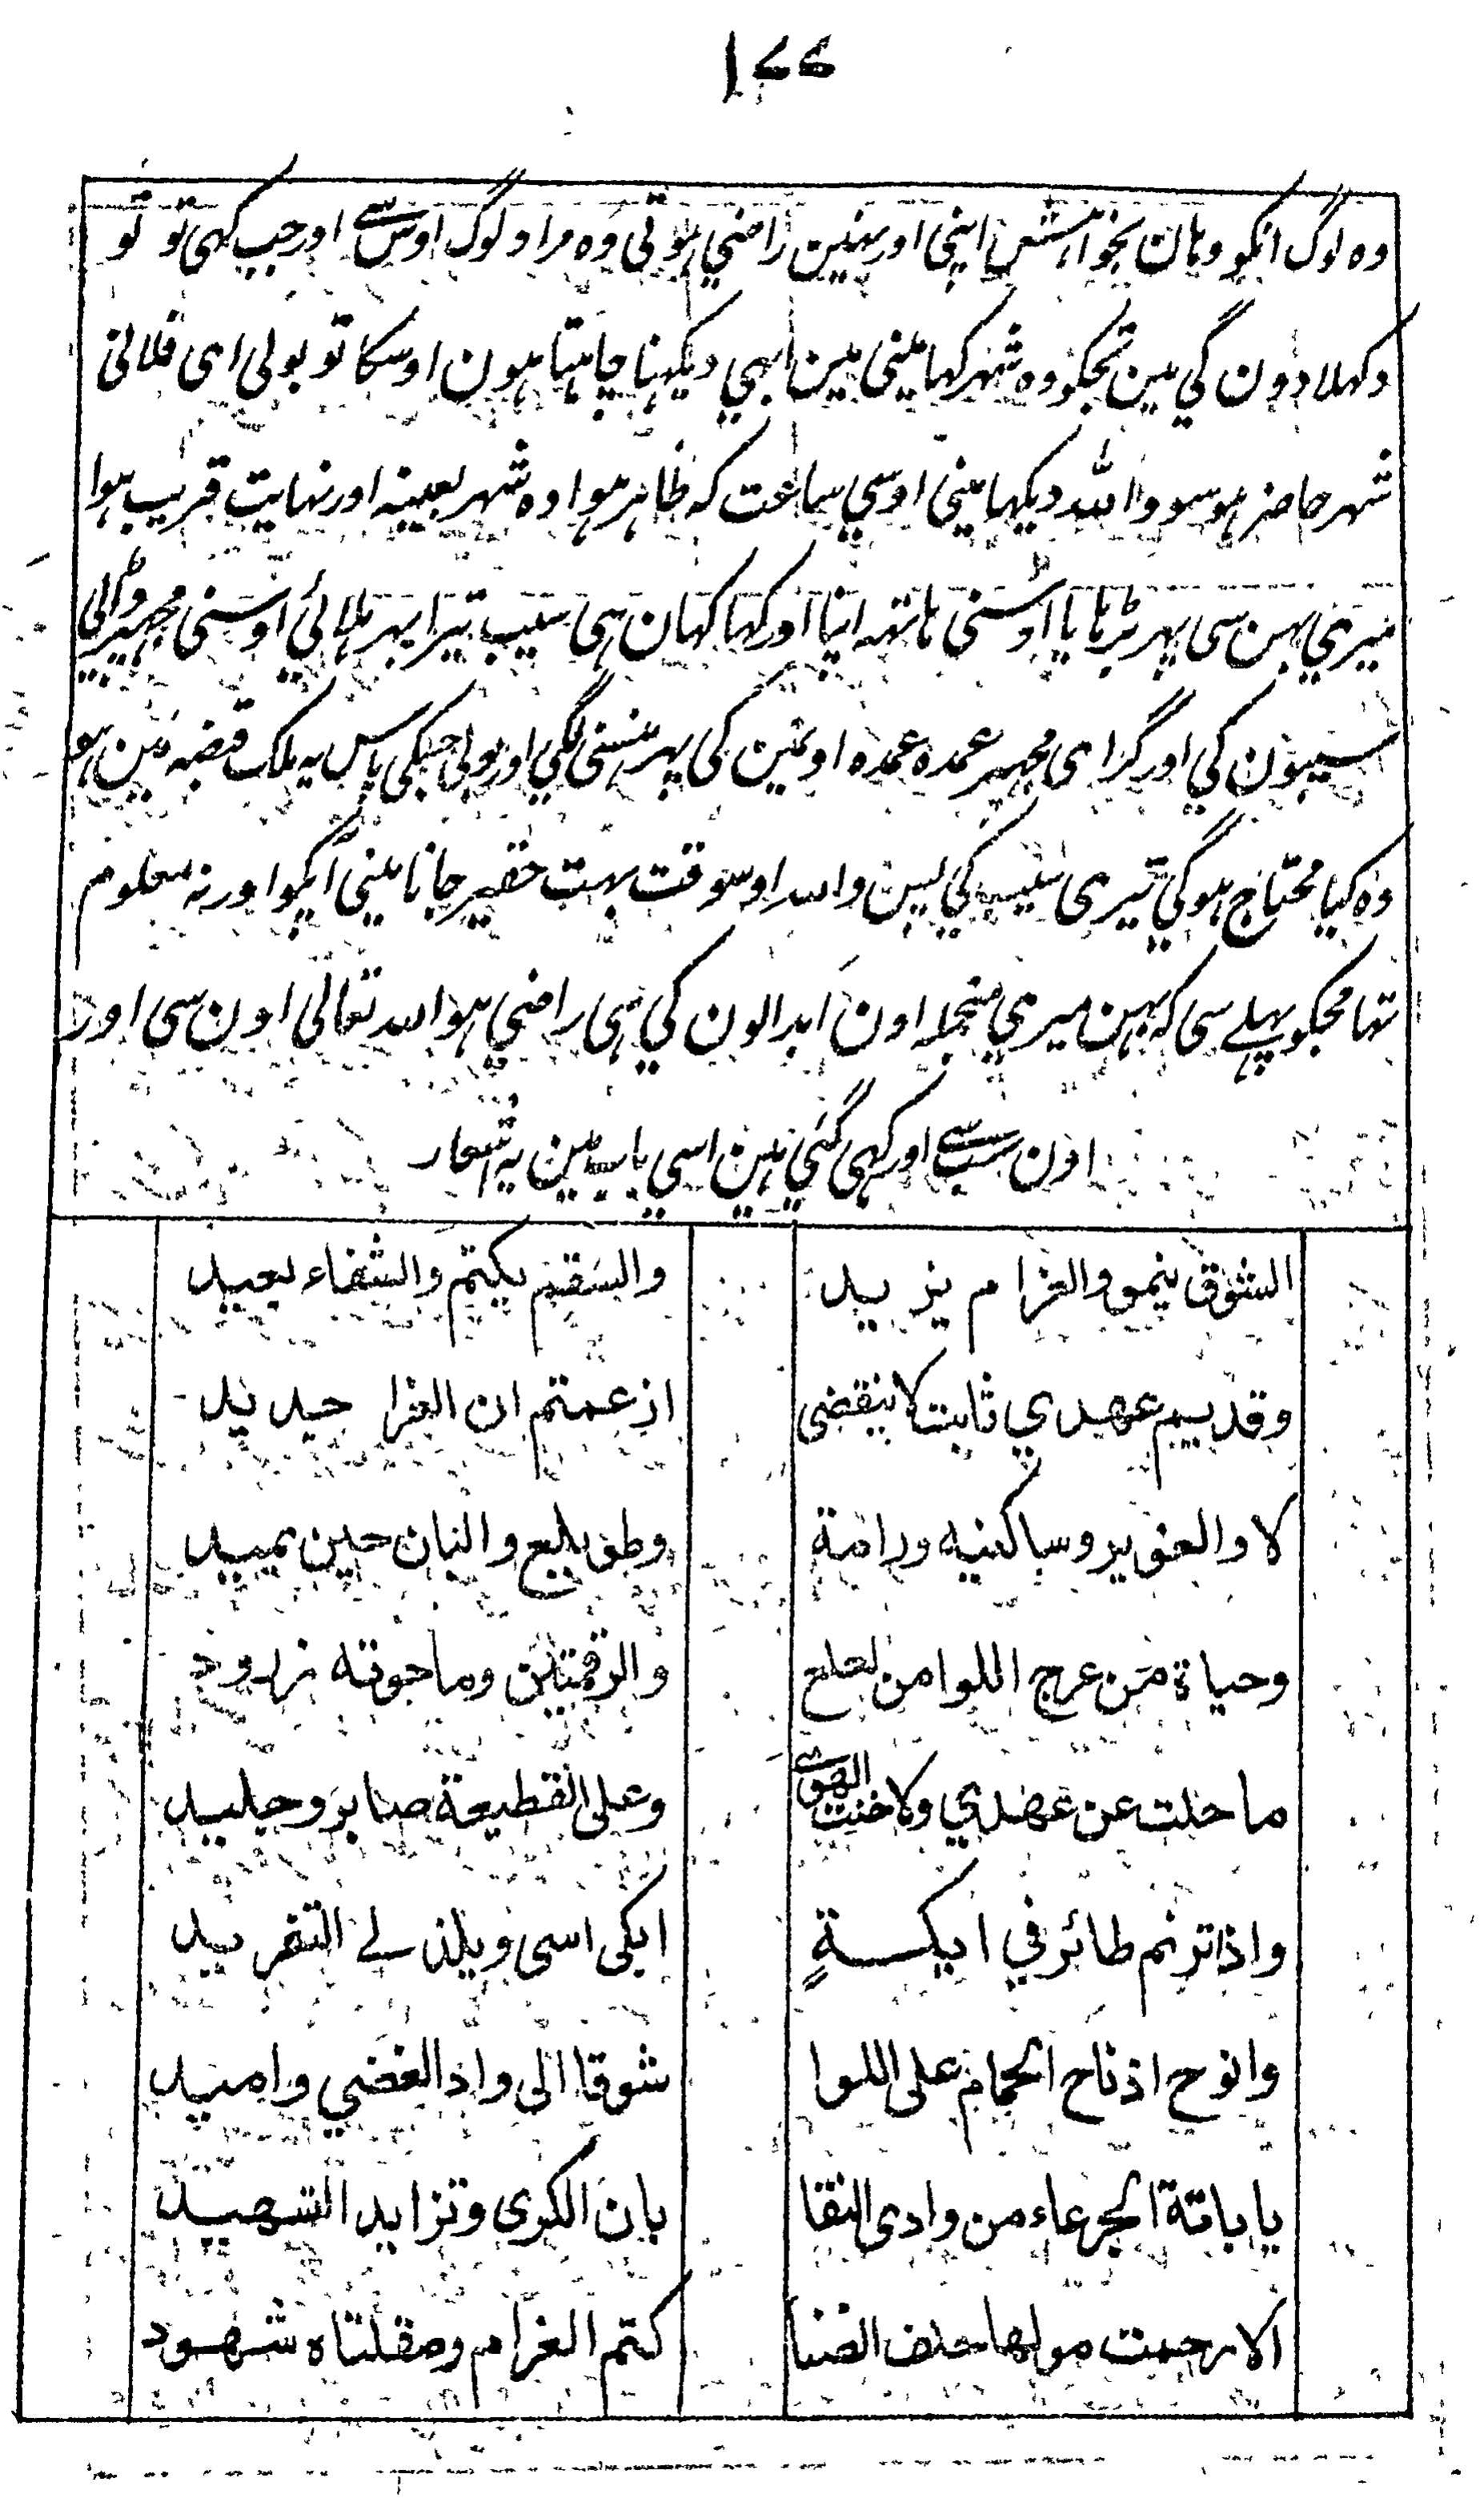 ۱۷۷
وہ لوگ انکو وہان بخواہش اپنی اور نہین راضي ہوتی وہ مراد لوگ اوس سے اور جب کہی تو تو
دکہلا دون گي مین تجکو وہ شہر کہا مینی مین ابہي دیکہنا چاہتا ہون اوسکا تو بولی ای فلانی
شہر حاضر ہو سو واللہ دیکہا مینی اوسي ساعت کہ ظاہر ہوا وہ شہر بعینہ اور نہایت قریب ہوا
میري بہن سی پہر بڑہایا اوسنی ہاتہہ اپنا اور کہا کہان ہی سیب تیرا پہر ہلائي اوسنی مجہپر ڈالی
سیبون کي اور گرا ای مجہپر عمدہ عمدہ اونمین کی پہر ہنسنی لگي اور بولی جسکی پاس یہ ملک قبضہ مین ہو
وہ کیا محتاج ہوگي تیری سیب کي پس واللہ اوسوقت بہت حقیر جانا مینی آپکو اور نہ معلوم
تہا مجکو پہلے سی کہ بہن میري منجملہ اون ابدالون کي ہی راضي ہو اللہ تعالی اون سی اور
اون سب سے اور کہی گئي ہین اسي باب مین یہ اشعار
الشوق ينمو والغرام يزيد    والسقيم يكتم والشفاء بعيد
وقديم عهدي ثابت لا ينقضى    از عمتم ان الغرا جديد
لا والعوير وساكنيه ورامة    وطويلع والبان حين يميد
وحياة من عرج اللوا من لعلع    والرقمتين وما حوته زرود
ما حلت عن عهدي ولا خنت الهوى    وعلى القطيعة صابر وجليد
واذا ترنم طائر في ايكةٍ    ابكى اسى ويلذ لے التغريد
وانوح اذ ناح الحمام على اللوا    شوقا الى واد الغضي واميد
يا بانة الجرعاء من وادى النقا    بان الكرى وتزايد التسهيد
الا رحمت مولها حلف الضنا    كتم الغرام ومقلتاه شهود